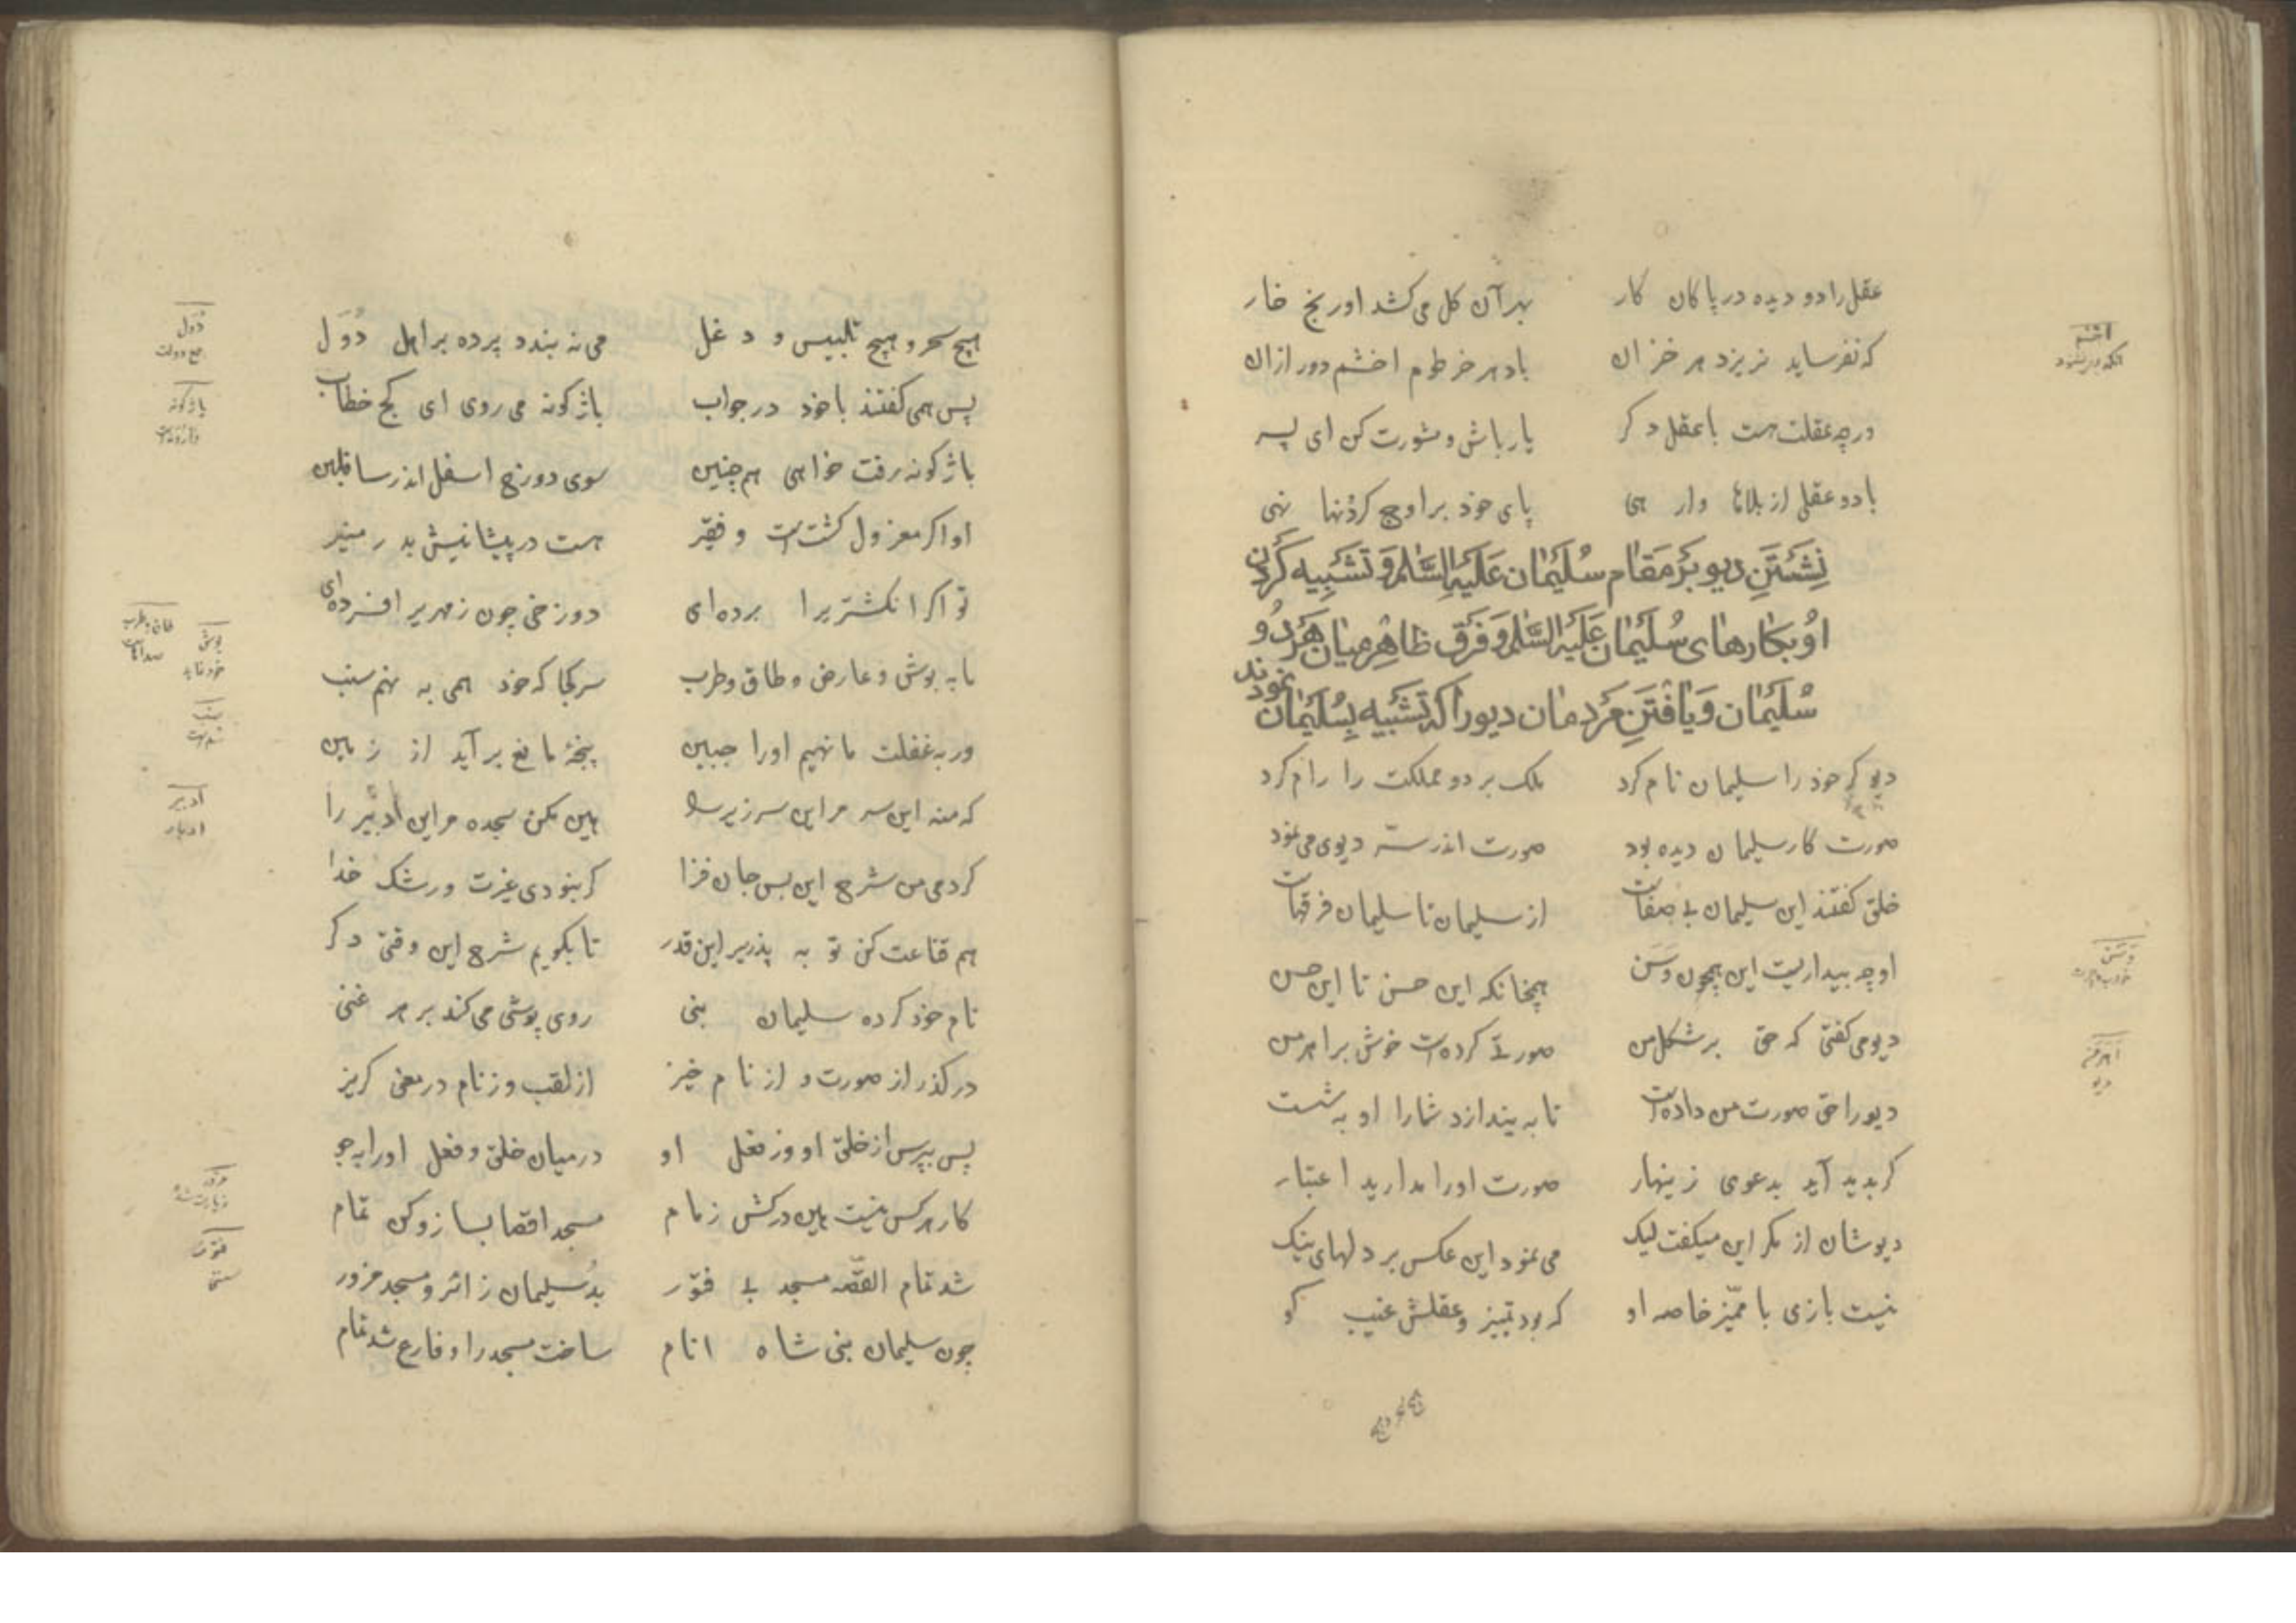 عقل را دو دیده در پاکان کار بهر آن کل می کشد او رنج خار
که نفرساید نریزد هر خزان باد هر خرطوم اخشم دور از ان
ورچه عقلت هست با عقل دکر یار باش و مشورت کن ای پسر
با دو عقل از بلاها وار هی پای خود بر اوج کردنها نهی
نِشَستَنِ دیو بَر مَقام سُلَیمان عَلَیهِ السَّلام وَ تَشبیه کَردن
اُو بکارهای سُلَیمان عَلَیه السَّلام وَ فَرق ظاهِر میان هَر دُو
سُلَیمان وَ یافتَنِ مَردمان دیو را که تَشبیه بِسُلَیمان نمودند
دیو کر خود را سلیمان نام کرد ملک برد و مملکت را رام کرد
صورت کار سلیمان دیده بود صورت اندر ستر دیوی می نمود
خلق کفتند این سلیمان بی صفاست از سلیمان تا سلیمان فرقهاست
او چو بیداریست این همچون وَسَن همچنانکه این حسن تا این حسن
دیو می کفتی که حق بر شکل من صورتی کرده است خوش بر اهرمن
دیو را حق صورت من داده است تا به یندازد شما را او به شست
کر بدید آید بدعوی زینهار صورت او را مدارید اعتبار
دیوشان از مکر این میکفت لیک می نمود این عکس بر دلهای نیک
نیست بازی با ممیّز خاصه او که بود تمییز و عقلش غیب کو
اخشم
وَسَن
اهرمن
دیو
هیچ سحر و هیچ تلبیس و دغل می نه بندد پرده بر اهل دُوَل
پس همی کفتند با خود در جواب باژکونه می روی ای کج خطاب
باژکونه رفت خواهی هم چنین سوی دوزخ اسفل اندر سافلین
او اکر معزول کشتست و فقیر هست در پیشانیش بدر منیر
تو اکر انکشتر یرا برده ای دوزخی چون زمهریر افسرده ای
ما به بوش و عارض و طاق و طرب سر کجا که خود همی به نهم سنب
ور به غفلت ما نهیم او را جبین پنجهٔ مانع بر آید از زمین
که منه این سر مر این سرزیر را هین مکن سجده مر این ادبیر را
کردمی من شرح این بس جان فزا کر نبودی غیرت و رشک خدا
هم قناعت کن تو به پذیر این قدر تا بکویم شرح این وقتی دکر
نام خود کرده سلیمان نبی روی پوشی می کند بر هر غنی
در کذر از صورت و از نام خیز از لقب وز نام در معنی کریز
پس بپرس از خلق او وز فعل او در میان خلق و فعل او را به جو
کار هر کس نیست هین درکش زمام مسجد اقصا بساز و کن تمام
شد تمام القصّه مسجد بی فتور بُد سلیمان زائر و مسجد مزور
چون سلیمان نبی شاه انام ساخت مسجد را و فارغ شد تمام
دُوَل
جمع دولت
باژکونه
بوش
ادبیر
ادبار
مزور
فتور